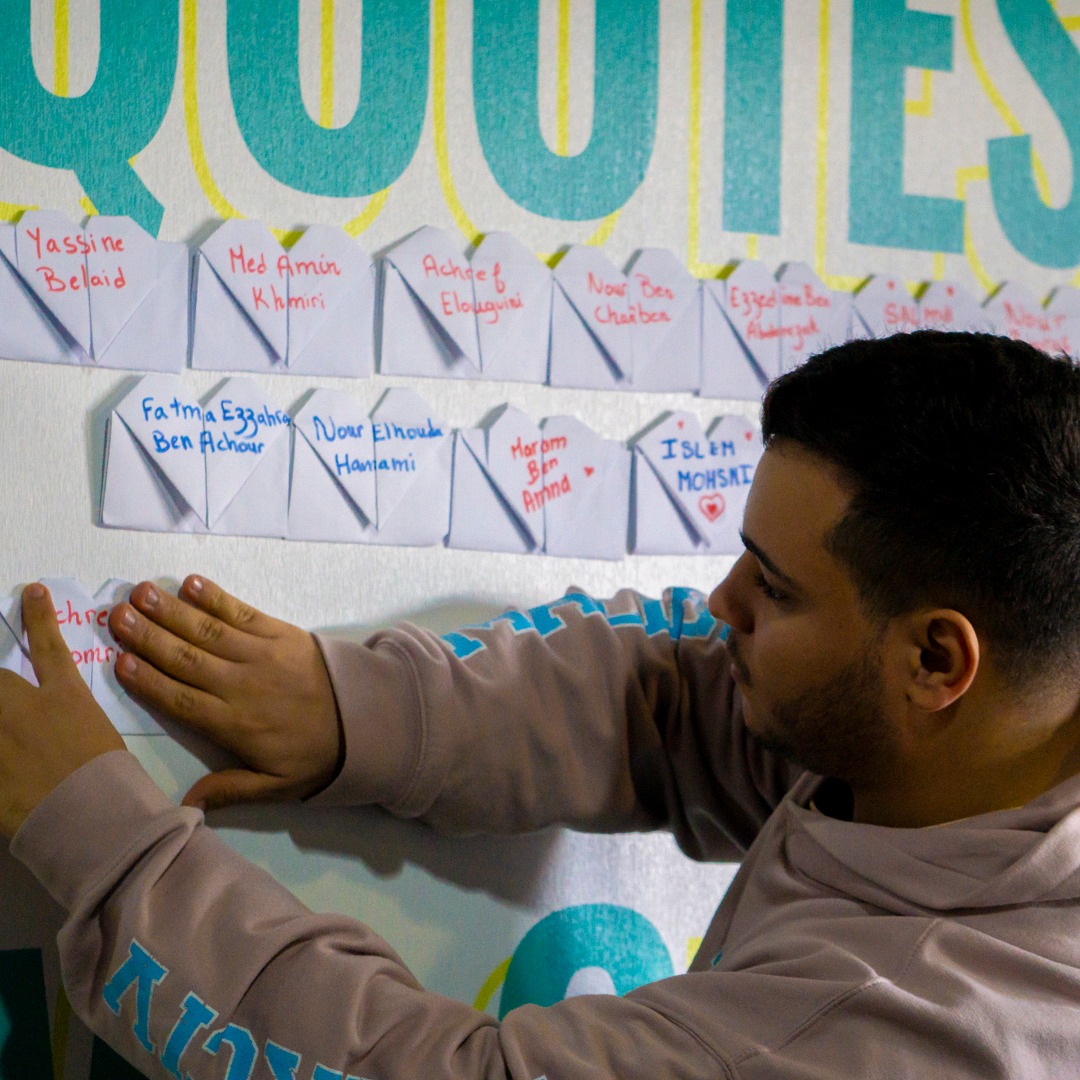 QUOTES
Yassine
Belaid
Med Amin
Khmiri
Achref
Elouguini
Nour Ben
Chaiben
Ezzedine Ben
SALMA
Nour
Fatma Ezzahra
Ben Achour
Nour Elhouda
Hammami
Maram
Ben
Amna
ISLEM
MOHSNI
chre
omri